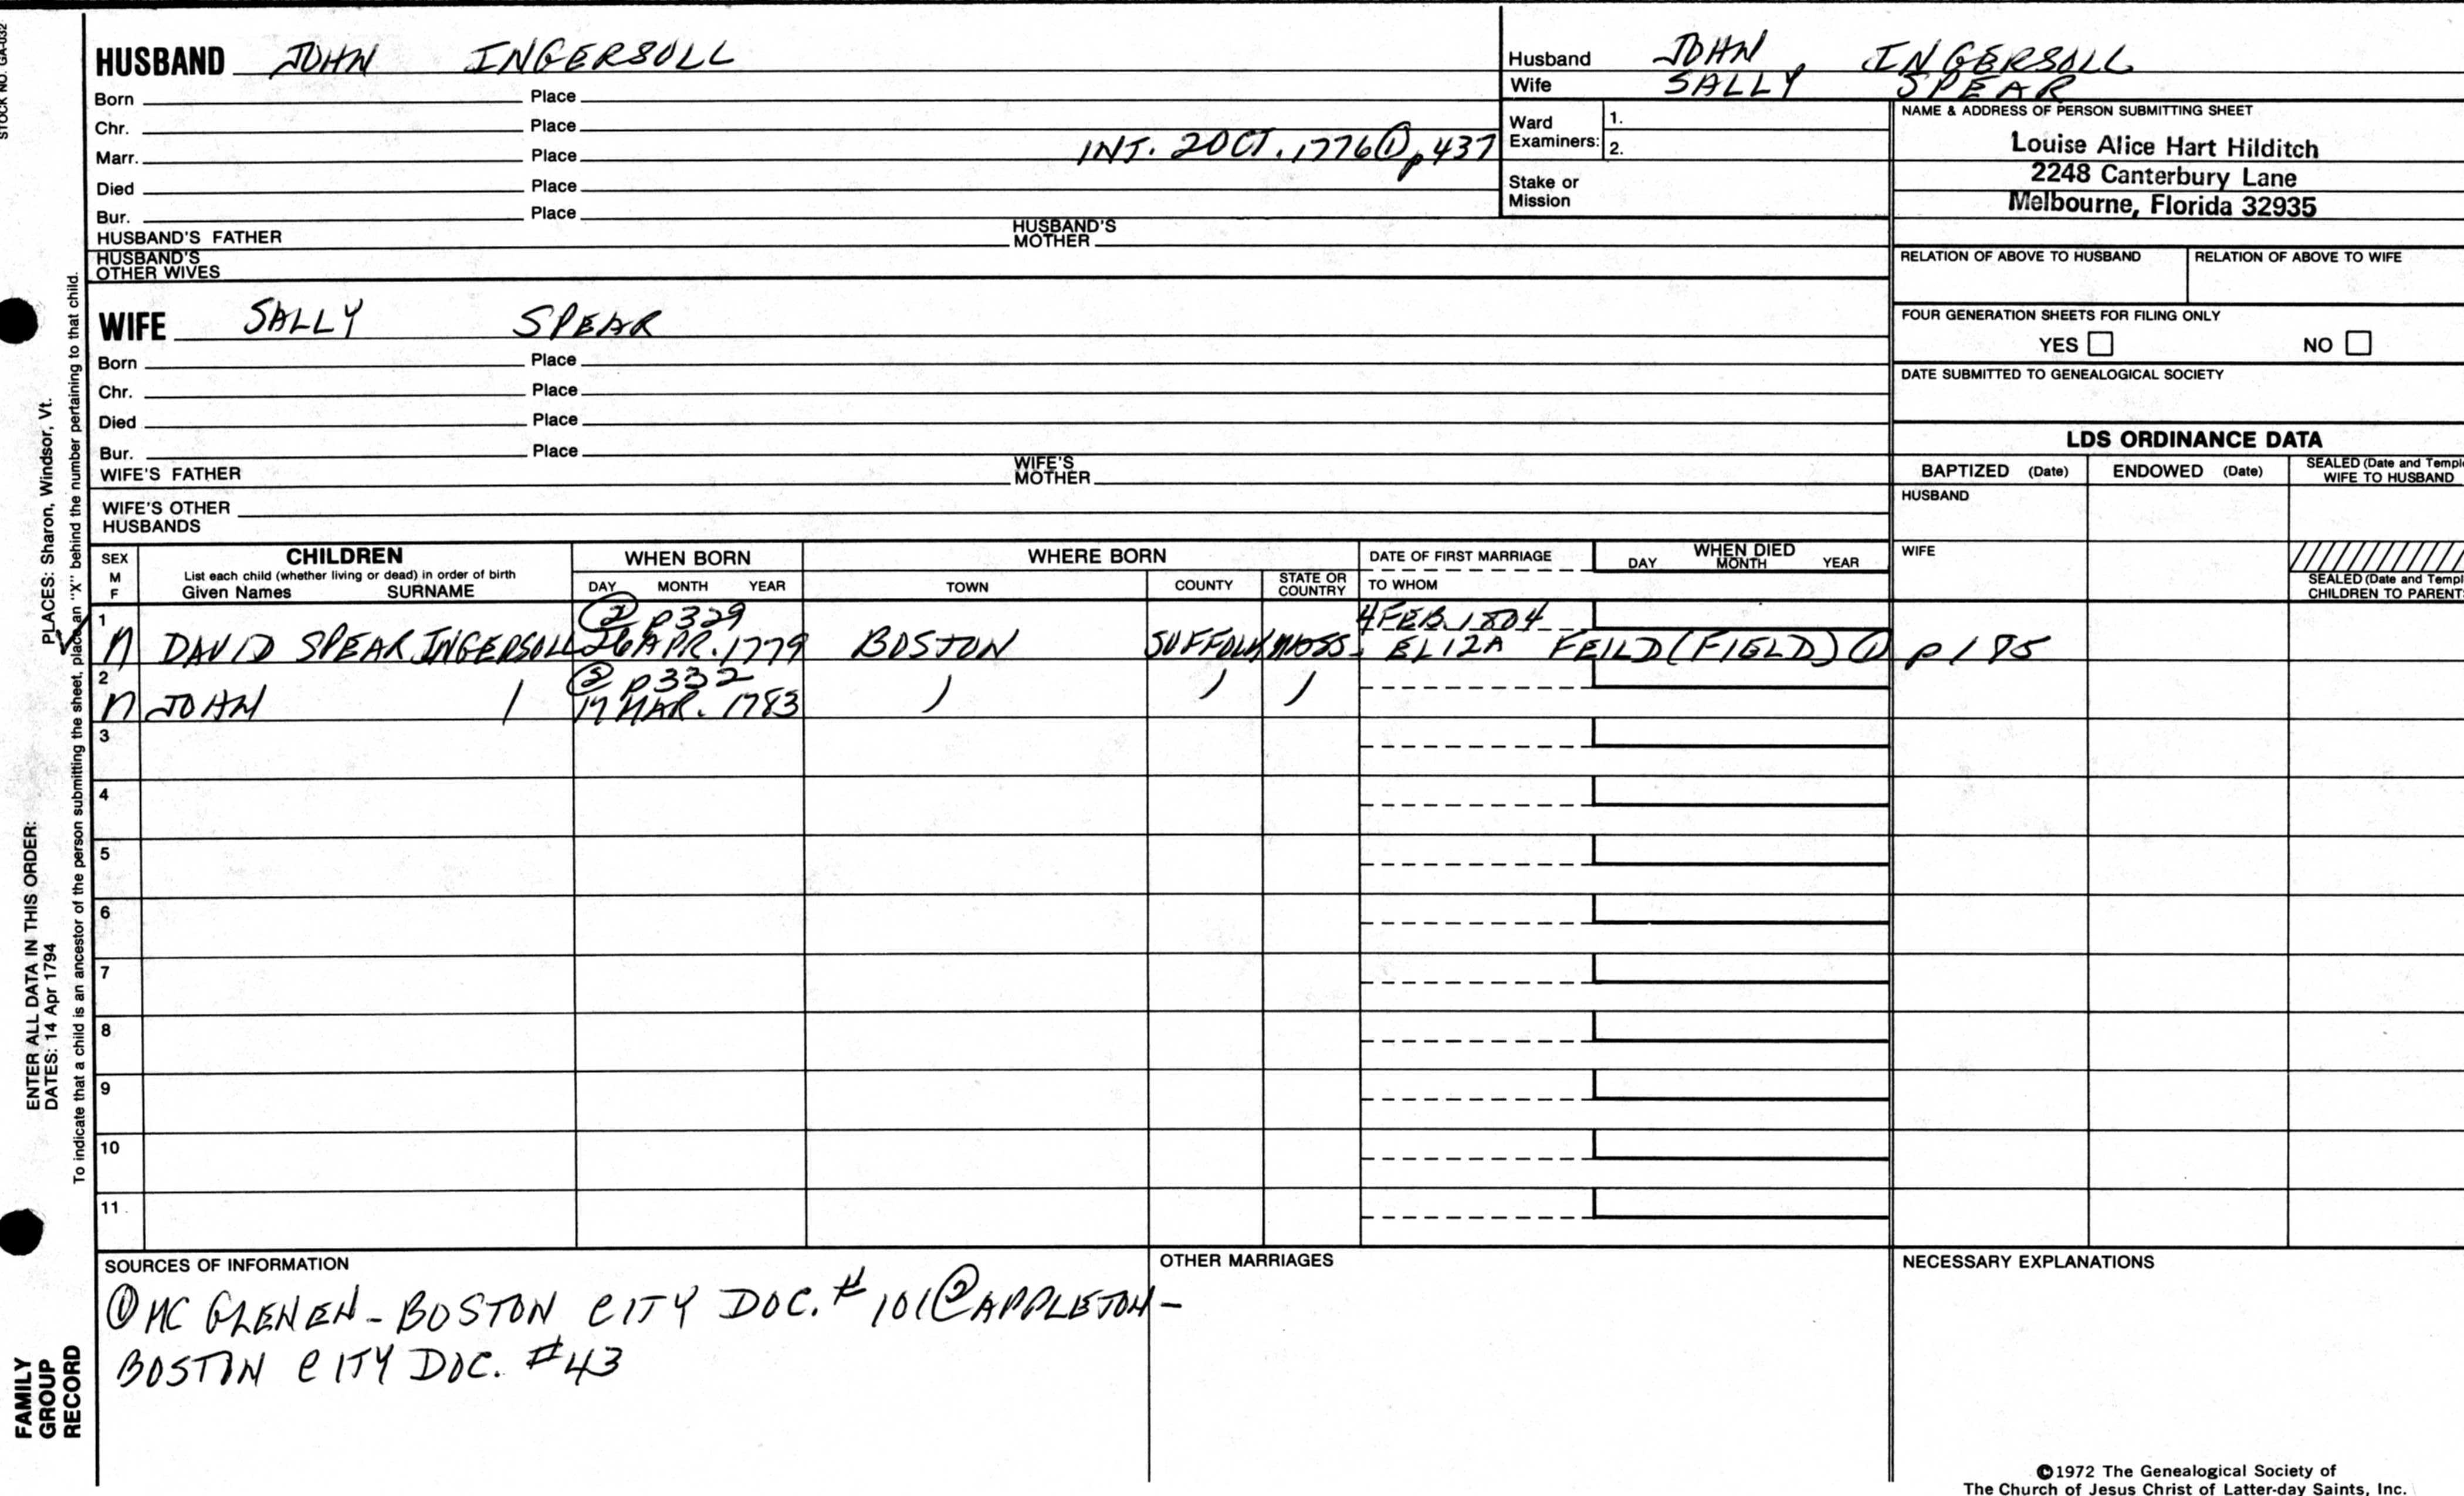 STOCK NO. GA-032
HUSBAND JOHN INGERSOLL
Born Place
Chr. Place
Marr. Place INT. 2 OCT. 1776 ① p 437
Died Place
Bur. Place
HUSBAND'S FATHER HUSBAND'S MOTHER
HUSBAND'S OTHER WIVES
WIFE SALLY SPEAR
Born Place
Chr. Place
Died Place
Bur. Place
WIFE'S FATHER WIFE'S MOTHER
WIFE'S OTHER HUSBANDS
Husband JOHN INGERSOLL
Wife SALLY SPEAR
Ward Examiners: 1.
2.
Stake or Mission
NAME & ADDRESS OF PERSON SUBMITTING SHEET
Louise Alice Hart Hilditch
2248 Canterbury Lane
Melbourne, Florida 32935
RELATION OF ABOVE TO HUSBAND RELATION OF ABOVE TO WIFE
FOUR GENERATION SHEETS FOR FILING ONLY
YES NO
DATE SUBMITTED TO GENEALOGICAL SOCIETY
LDS ORDINANCE DATA
BAPTIZED (Date) ENDOWED (Date) SEALED (Date and Temple
WIFE TO HUSBAND
HUSBAND
WIFE
SEALED (Date and Templ
CHILDREN TO PARENT
SEX M F
CHILDREN
List each child (whether living or dead) in order of birth
Given Names SURNAME
WHEN BORN
DAY MONTH YEAR
WHERE BORN
TOWN COUNTY STATE OR COUNTRY
DATE OF FIRST MARRIAGE
TO WHOM
WHEN DIED
DAY MONTH YEAR
1 ② p 329 4 FEB 1804
M DAVID SPEAR INGERSOLL 26 APR. 1779 BOSTON SUFFOLK MASS. ELIZA FEILD (FIELD) ① p 185
2 ② p 332
M JOHN 17 MAR. 1783
3
4
5
6
7
8
9
10
11
SOURCES OF INFORMATION
① MC GLENEN - BOSTON CITY DOC. # 101 ② APPLETON -
BOSTON CITY DOC. #43
OTHER MARRIAGES
NECESSARY EXPLANATIONS
©1972 The Genealogical Society of
The Church of Jesus Christ of Latter-day Saints, Inc.
ENTER ALL DATA IN THIS ORDER:
DATES: 14 Apr 1794 PLACES: Sharon, Windsor, Vt.
To indicate that a child is an ancestor of the person submitting the sheet, place an "X" behind the number pertaining to that child.
FAMILY
GROUP
RECORD